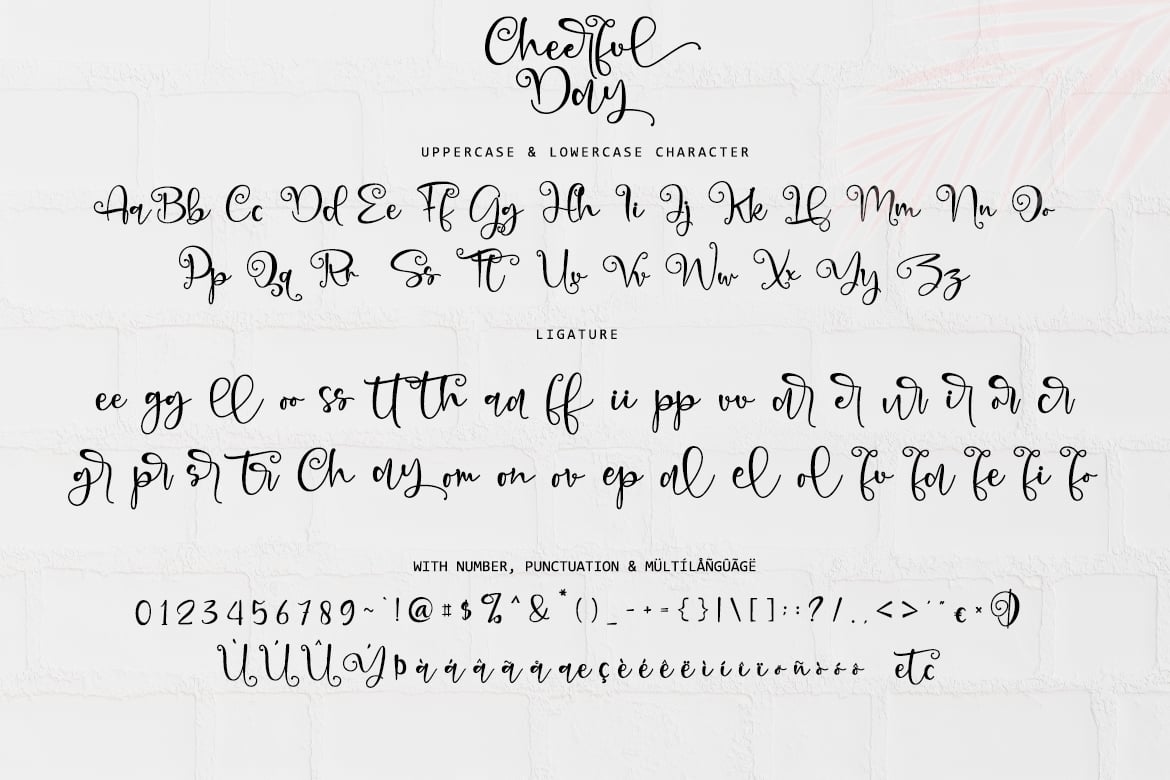 Cheerful
Day
UPPERCASE & LOWERCASE CHARACTER
Aa Bb Cc Dd Ee Ff Gg Hh Ii Jj Kk Ll Mm Nn Oo
Pp Qq Rr Ss Tt Uu Vv Ww Xx Yy Zz
LIGATURE
ee gg ll oo ss tt th aa ff ii pp vv ar er ur ir or cr
gr pr sr tr Ch ay om on ov ep al el ol fu fa fe fi fo
WITH NUMBER, PUNCTUATION & MÜLTÍLÅÑGÛÃGË
0 1 2 3 4 5 6 7 8 9 ~ ` ! @ # $ % ^ & * ( ) _ - + = { } | \ [ ] : ; ? / . , < > ' " € ×
Ù Ú Û Ý Þ à á â ã ä å æ ç è é ê ë ì í î ï ñ ò ó ô etc